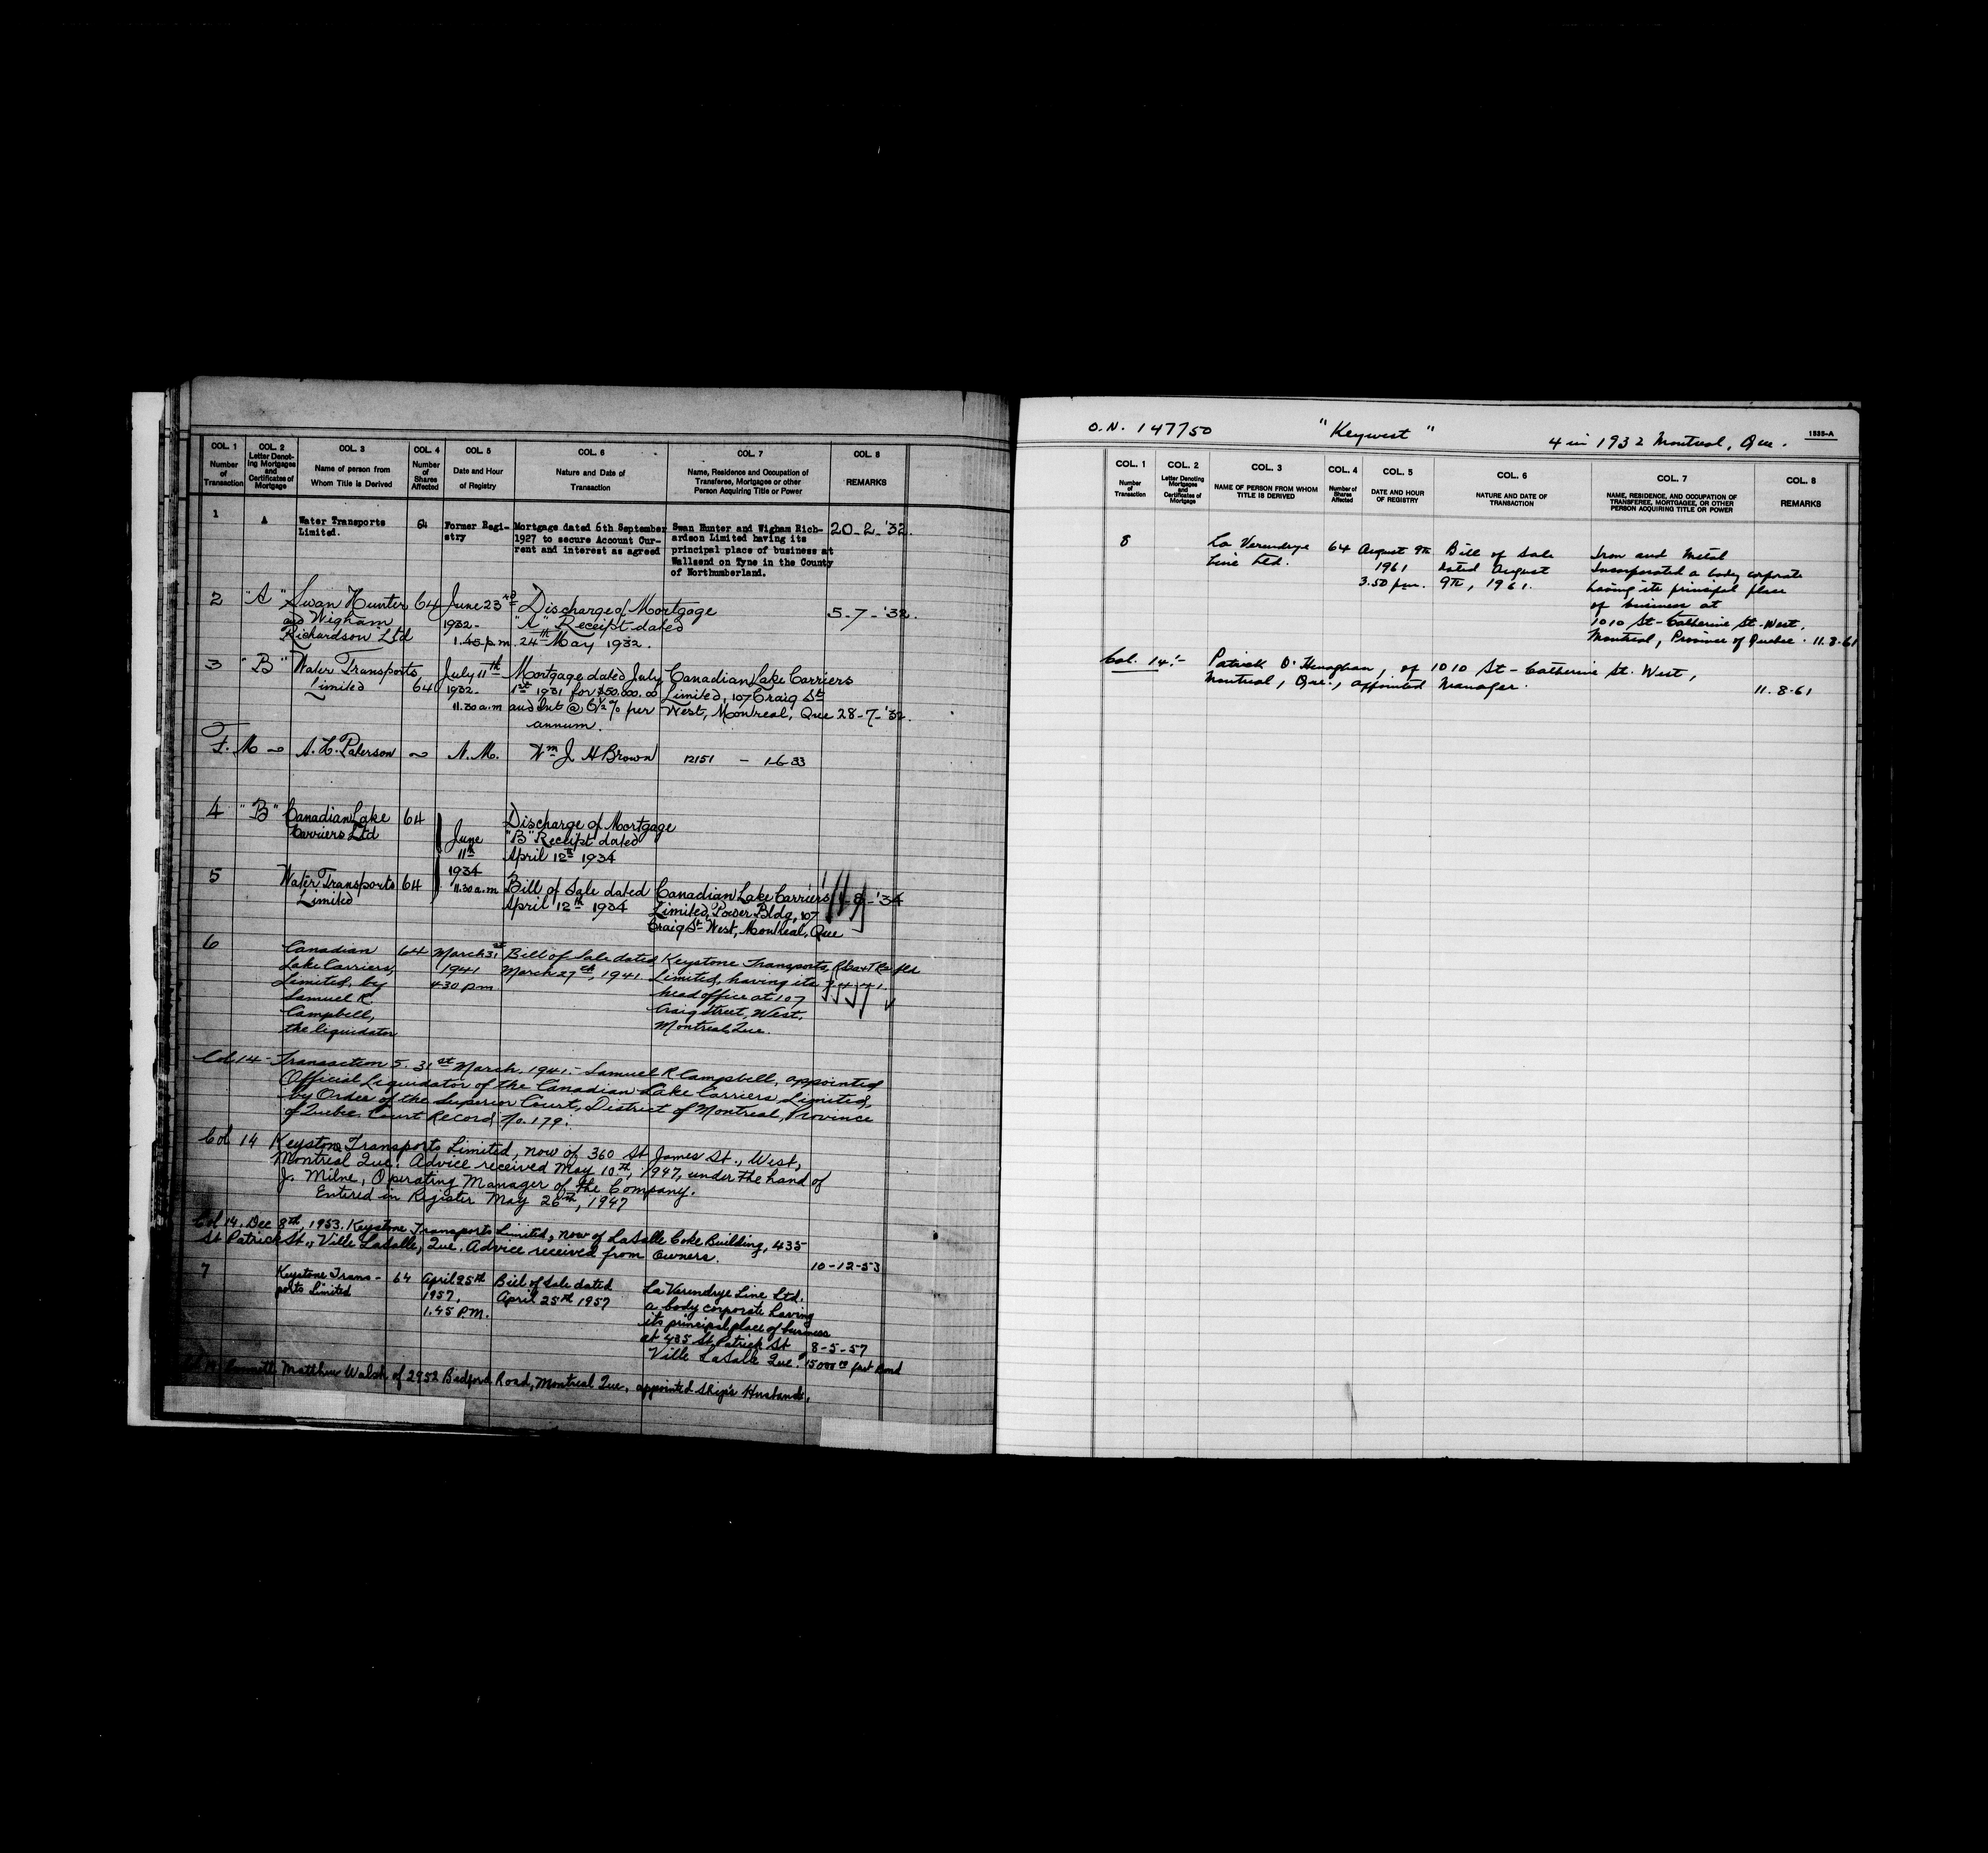 COL. 1 COL. 2 COL. 3 COL. 4 COL. 5 COL. 6 COL. 7 COL. 8
Number of Transaction
Letter Denoting Mortgages and Certificates of Mortgage
Name of person from Whom Title is Derived
Number of Shares Affected
Date and Hour of Registry
Nature and Date of Transaction
Name, Residence and Occupation of Transferee, Mortgagee or other Person Acquiring Title or Power
REMARKS
1 A Water Transports 64 Former Regi- Mortgage dated 6th September Swan Hunter and Wigham Rich- 20-2-'32.
Limited. stry 1927 to secure Account Cur- ardson Limited having its
rent and interest as agreed principal place of business at
Wallsend on Tyne in the County
of Northumberland.
2 "A" Swan Hunter 64 June 23rd Discharge of Mortgage 5-7-'32.
and Wigham 1932- "A" Receipt dated
Richardson Ltd 1.45 p.m. 24th May 1932.
3 "B" Water Transports July 11th Mortgage dated July Canadian Lake Carriers
Limited 64 1932- 1st 1931 for $50,000.00 Limited, 107 Craig St
11.30 a.m and Int @ 6½% per West, Montreal, Que 28-7-'32.
annum.
F. M A. L. Paterson N. M. Wm J H Brown 12151 - 1-6-33
4 "B" Canadian Lake 64 Discharge of Mortgage
Carriers Ltd June "B" Receipt dated
11th April 12th 1934
5 Water Transports 64 1934 Bill of Sale dated Canadian Lake Carriers -'34
Limited 11.30 a.m April 12th 1934 Limited, Power Bldg, 107
Craig St West, Montreal, Que
6 Canadian 64 March 31st Bill of Sale dated Keystone Transports
Lake Carriers, 1941 March 27th, 1941. Limited, having its
Limited, by 4.30 pm head office at 107
Samuel R. Craig Street, West,
Campbell, Montreal, Que.
the liquidator
Col 14- Transaction 5. 31st March. 1941.- Samuel R Campbell, appointed
Official Liquidator of the Canadian Lake Carriers Limited,
by Order of the Superior Court, District of Montreal, Province
of Quebec. Court Record No. 179.
Col 14 Keystone Transports Limited, now of 360 St James St., West,
Montreal Que. Advice received May 10th, 1947, under the hand of
J. Milne, Operating Manager of the Company.
Entered in Register May 26th, 1947
Col 14. Dec 8th, 1953. Keystone Transports Limited, now of LaSalle Coke Building, 435
St Patrick St., Ville LaSalle, Que. Advice received from Owners.
10-12-53
7 Keystone Trans- 64 April 25th Bill of Sale dated La Verendrye Line Ltd.
ports Limited 1957, April 25th 1957 a body corporate having
1.45 P.M. its principal place of business
at 435 St Patrick St 8-5-57
Ville LaSalle Que.
Matthew Walsh of 2952 Bedford Road, Montreal Que, appointed Ship's Husband.
O.N. 147750 "Keywest" 4 in 1932 Montreal, Que. 1535-A
COL. 1 COL. 2 COL. 3 COL. 4 COL. 5 COL. 6 COL. 7 COL. 8
Number of Transaction
Letter Denoting Mortgages and Certificates of Mortgage
NAME OF PERSON FROM WHOM TITLE IS DERIVED
Number of Shares Affected
DATE AND HOUR OF REGISTRY
NATURE AND DATE OF TRANSACTION
NAME, RESIDENCE, AND OCCUPATION OF TRANSFEREE, MORTGAGEE, OR OTHER PERSON ACQUIRING TITLE OR POWER
REMARKS
8 La Verendrye 64 August 9th Bill of Sale Iron and Metal
Line Ltd. 1961 dated August Incorporated a body corporate
3.50 pm. 9th, 1961. having its principal place
of business at
1010 St-Catherine St-West,
Montreal, Province of Quebec. 11.8.61
Col. 14:- Patrick O'Henaghan, of 1010 St-Catherine St. West,
Montreal, Que., appointed Manager.
11.8.61